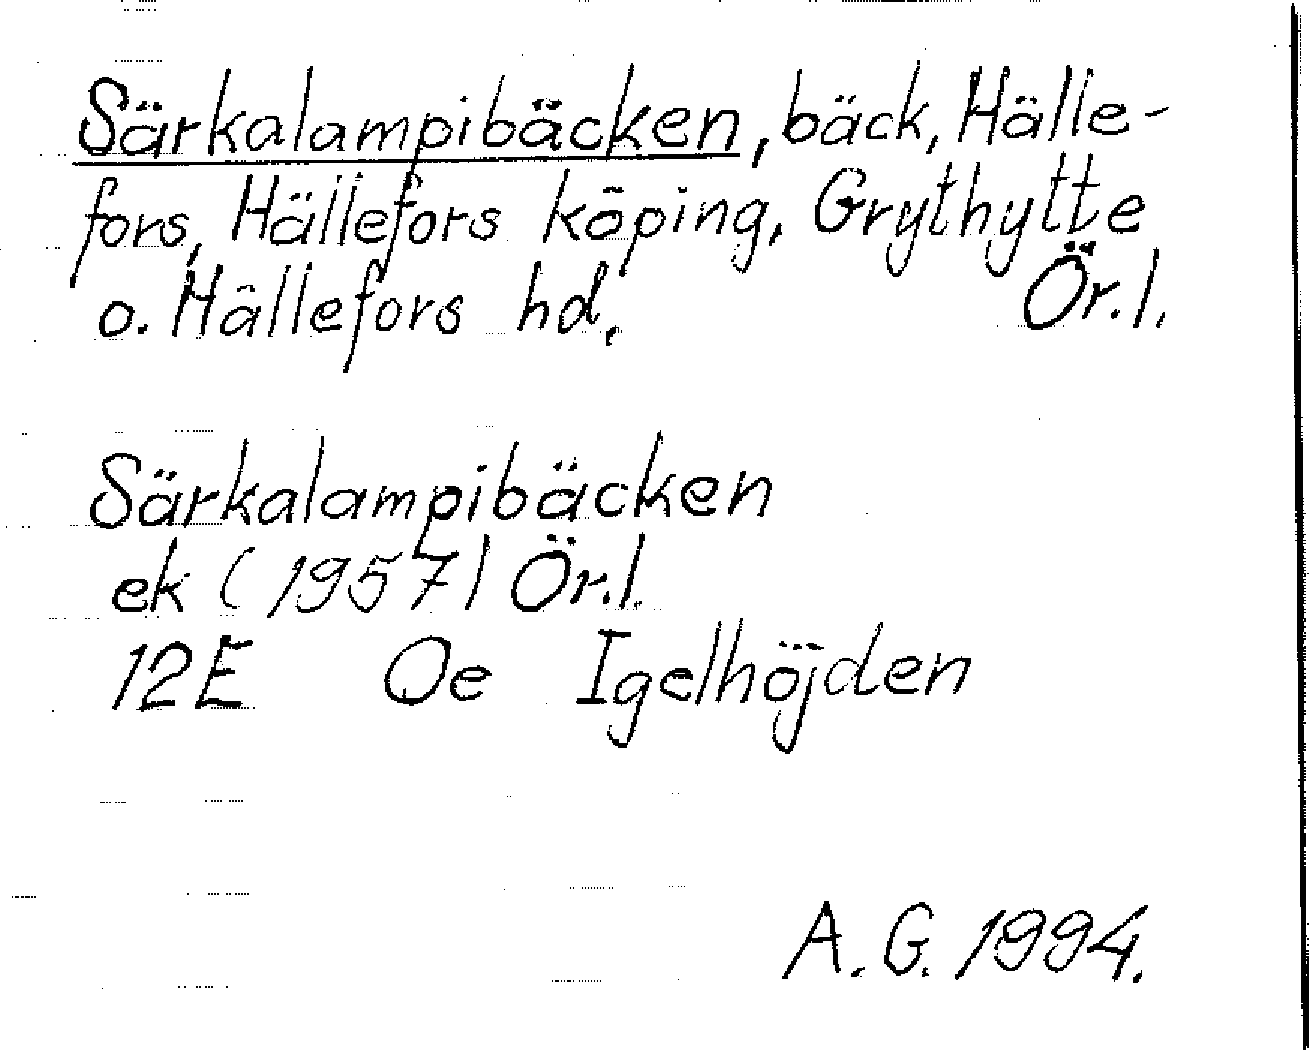 Särkalampibäcken, bäck, Hälle-
fors, Hällefors köping, Grythytte
o. Hällefors hd, Ör.l.
Särkalampibäcken
ek (1957) Ör.l.
12E Oe Igelhöjden
A.G. 1994.